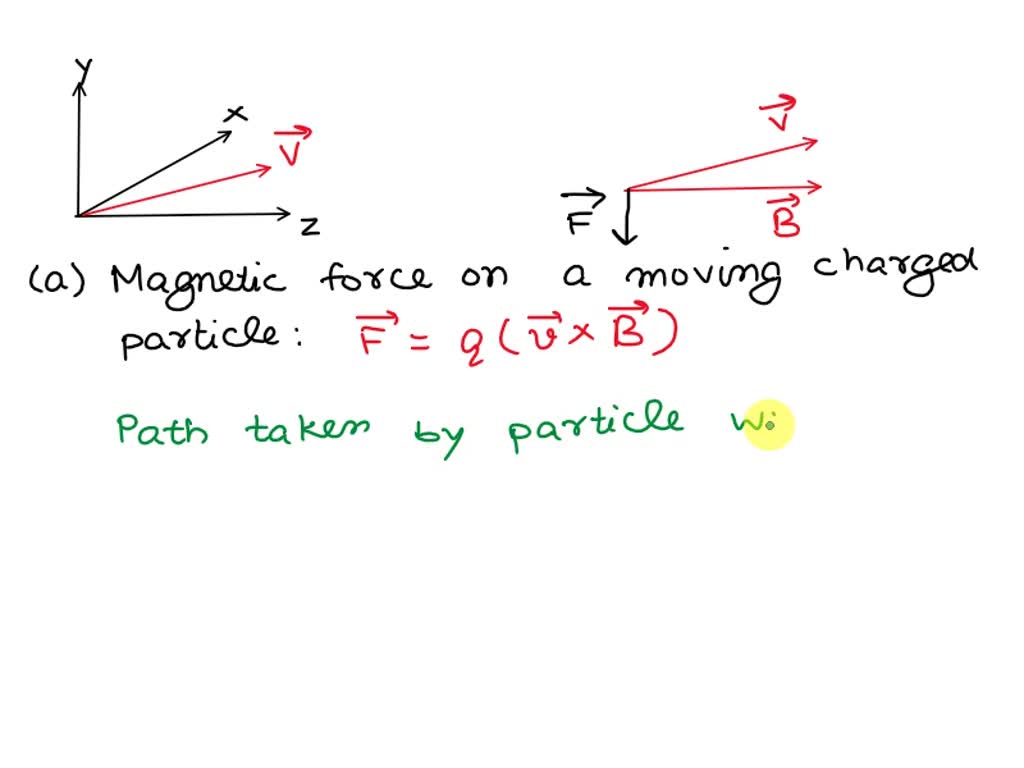 y
x
V
z
v
F
B
(a) Magnetic force on a moving charged
particle: F = q (v × B)
Path taken by particle wi